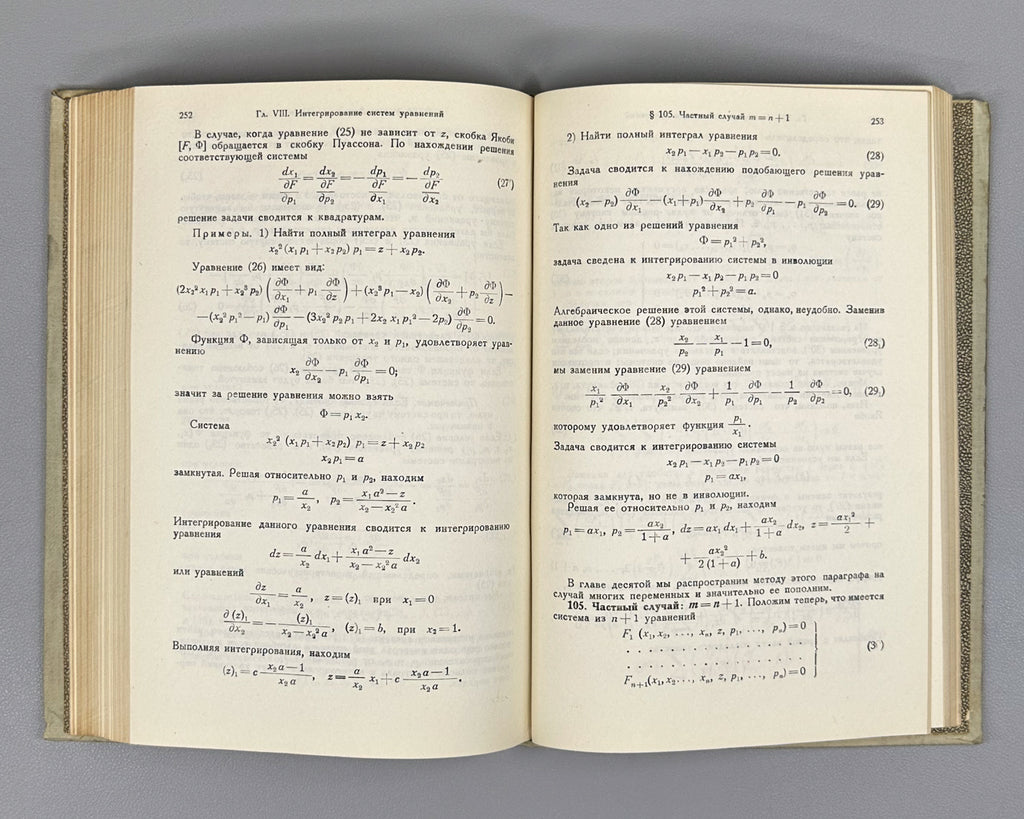 252 Гл. VIII. Интегрирование систем уравнений
В случае, когда уравнение (25) не зависит от z, скобка Якоби
[F, Φ] обращается в скобку Пуассона. По нахождении решения
соответствующей системы
dx₁/(∂F/∂p₁) = dx₂/(∂F/∂p₂) = — dp₁/(∂F/∂x₁) = — dp₂/(∂F/∂x₂) (27')
решение задачи сводится к квадратурам.
Примеры. 1) Найти полный интеграл уравнения
x₂² (x₁ p₁ + x₂ p₂) p₁ = z + x₂ p₂.
Уравнение (26) имеет вид:
(2x₂² x₁ p₁ + x₂³ p₂) (∂Φ/∂x₁ + p₁ ∂Φ/∂z) + (x₂³ p₁ — x₂) (∂Φ/∂x₂ + p₂ ∂Φ/∂z) —
— (x₂² p₁² — p₁) ∂Φ/∂p₁ — (3x₂² p₂ p₁ + 2x₂ x₁ p₁² — 2p₂) ∂Φ/∂p₂ = 0.
Функция Φ, зависящая только от x₂ и p₁, удовлетворяет урав-
нению
x₂ ∂Φ/∂x₂ — p₁ ∂Φ/∂p₁ = 0;
значит за решение уравнения можно взять
Φ = p₁ x₂.
Система
x₂² (x₁ p₁ + x₂ p₂) p₁ = z + x₂ p₂
x₂ p₁ = a
замкнутая. Решая относительно p₁ и p₂, находим
p₁ = a/x₂, p₂ = (x₁ a² — z)/(x₂ — x₂² a).
Интегрирование данного уравнения сводится к интегрированию
уравнения
dz = a/x₂ dx₁ + (x₁ a² — z)/(x₂ — x₂² a) dx₂
или уравнений
∂z/∂x₁ = a/x₂, z = (z)₁ при x₁ = 0
∂(z)₁/∂x₂ = — (z)₁/(x₂ — x₂² a), (z)₁ = b, при x₂ = 1.
Выполняя интегрирования, находим
(z)₁ = c (x₂ a — 1)/(x₂ a), z = a/x₂ x₁ + c (x₂ a — 1)/(x₂ a).
§ 105. Частный случай m = n + 1 253
2) Найти полный интеграл уравнения
x₂ p₁ — x₁ p₂ — p₁ p₂ = 0. (28)
Задача сводится к нахождению подобающего решения урав-
нения
(x₂ — p₂) ∂Φ/∂x₁ — (x₁ + p₁) ∂Φ/∂x₂ + p₂ ∂Φ/∂p₁ — p₁ ∂Φ/∂p₂ = 0. (29)
Так как одно из решений уравнения
Φ = p₁² + p₂²,
задача сведена к интегрированию системы в инволюции
x₂ p₁ — x₁ p₂ — p₁ p₂ = 0
p₁² + p₂² = a.
Алгебраическое решение этой системы, однако, неудобно. Заменив
данное уравнение (28) уравнением
x₂/p₂ — x₁/p₁ — 1 = 0, (28₁)
мы заменим уравнение (29) уравнением
x₁/p₁² ∂Φ/∂x₁ — x₂/p₂² ∂Φ/∂x₂ + 1/p₁ ∂Φ/∂p₁ — 1/p₂ ∂Φ/∂p₂ = 0, (29₁)
которому удовлетворяет функция p₁/x₁.
Задача сводится к интегрированию системы
x₂ p₁ — x₁ p₂ — p₁ p₂ = 0
p₁ = ax₁,
которая замкнута, но не в инволюции.
Решая ее относительно p₁ и p₂, находим
p₁ = ax₁, p₂ = ax₂/(1 + a), dz = ax₁ dx₁ + ax₂/(1 + a) dx₂, z = ax₁²/2 +
+ ax₂²/(2 (1 + a)) + b.
В главе десятой мы распространим методу этого параграфа на
случай многих переменных и значительно ее пополним.
105. Частный случай: m = n + 1. Положим теперь, что имеется
система из n + 1 уравнений
F₁ (x₁, x₂, ..., xₙ, z, p₁, ..., pₙ) = 0
. . . . . . . . . . . . . . .
. . . . . . . . . . . . . . . (3 )
Fₙ₊₁(x₁, x₂ ..., xₙ, z, p₁, ..., pₙ) = 0